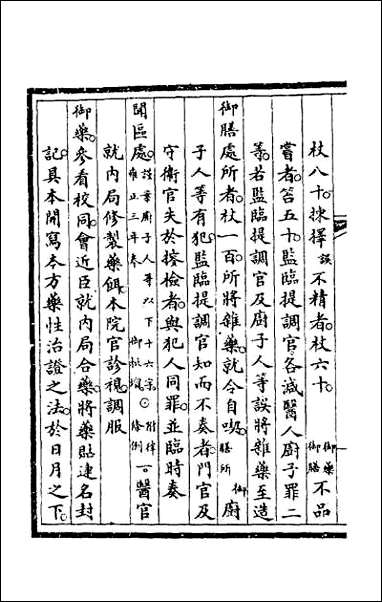 杖八十揀擇誤不精者杖六十御藥御膳不品
嘗者笞五十監臨提調官各減醫人廚子罪二
等若監臨提調官及廚子人等誤將雜藥至造
御膳處所者杖一百所將雜藥就令自喫御膳所廚
子人等有犯監臨提調官知而不奏者門官及
守衛官失於搜檢者與犯人同罪並臨時奏
聞區處謹案廚子人等以下十六字雍正三年奏御批增○附律條例一醫官
就內局修製藥餌本院官診視調服
御藥參看校同會近臣就內局合藥將藥貼連名封
記具本開寫本方藥性治證之法於日月之下